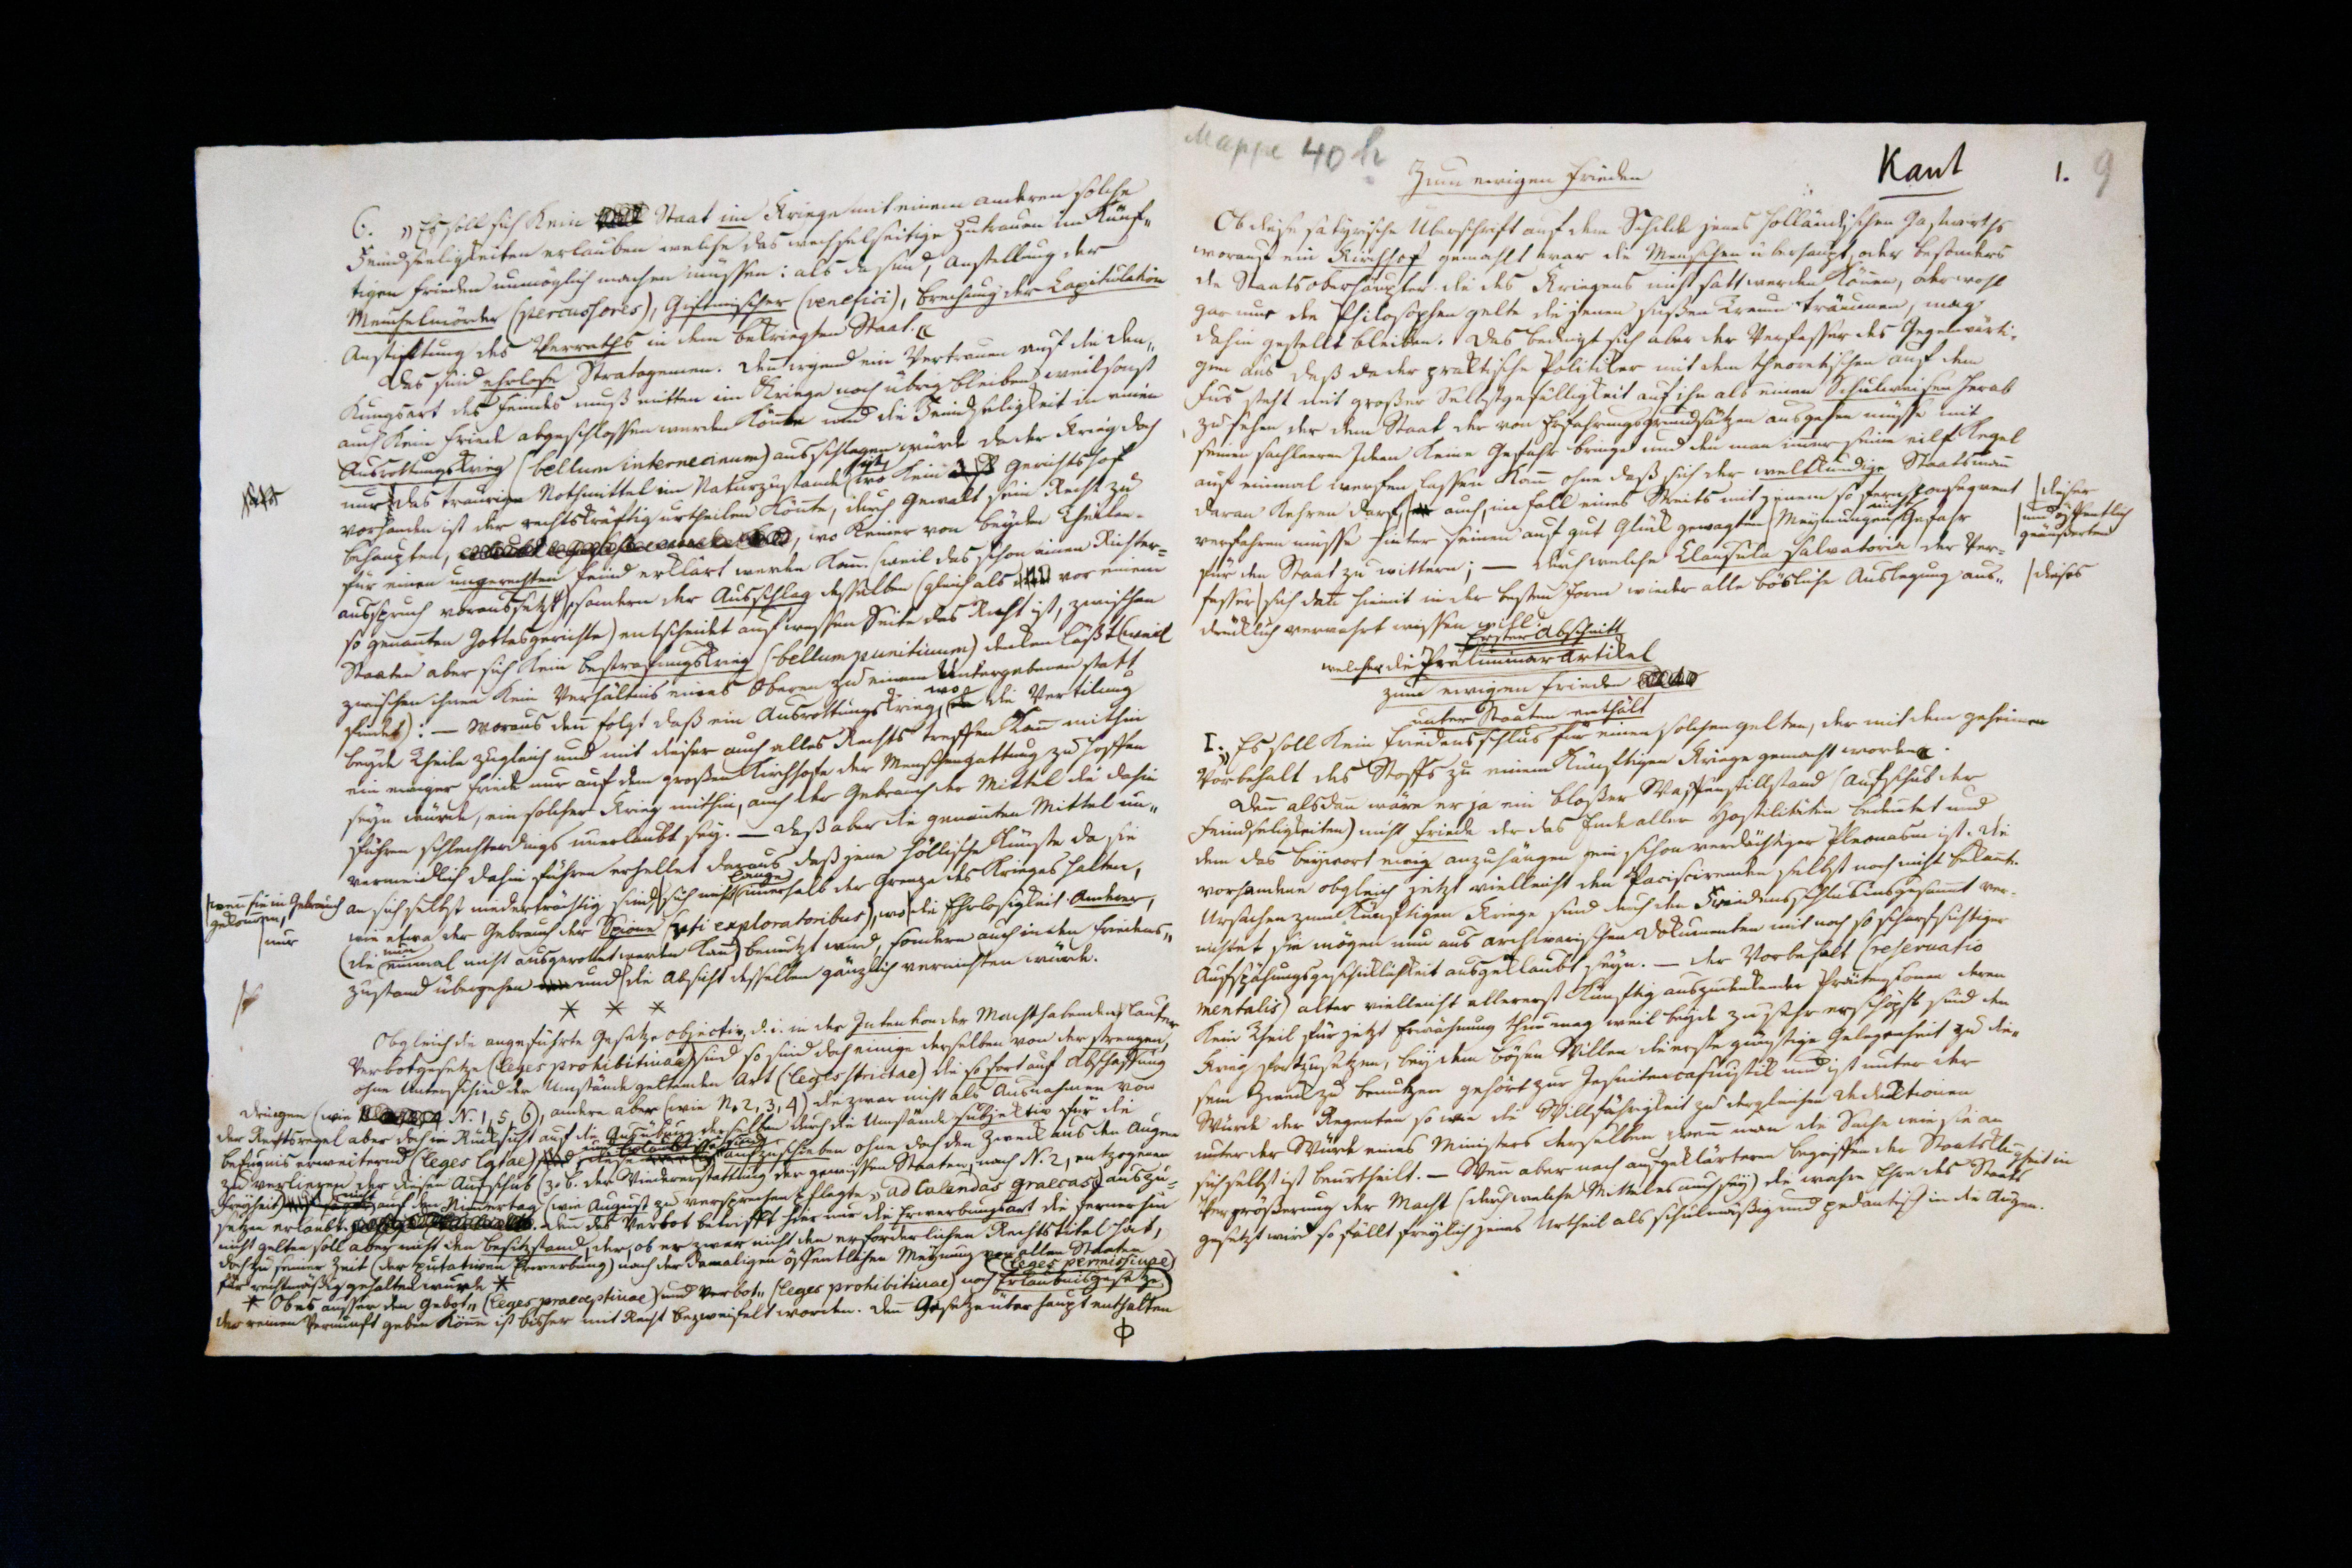 6. „Es soll sich kein Staat im Kriege mit einem anderen solche
Feindseeligkeiten erlauben welche das wechselseitige Zutrauen im künf„
tigen Frieden unmöglich machen müssen: als da sind, Anstellung der
Meuchelmörder (percussores), Giftmischer (venefici), Brechung der Capitulation
Anstiftung des Verraths in dem bekriegten Staat.„
Das sind ehrlose Stratagemen. Denn irgend ein Vertrauen auf die Den„
kungsart des Feindes muß mitten im Kriege noch übrig bleiben, weil sonst
auch kein Friede abgeschlossen werden könte und die Feindseligkeit in einen
Ausrottungskrieg (bellum internecinum) ausschlagen würde da der Krieg doch
nur das traurige Nothmittel im Naturzustande ist (wo kein Gerichtshof
vorhanden ist der rechtskräftig urtheilen könte, durch Gewalt sein Recht zu
behaupten, wo keiner von beyden Theilen
für einen ungerechten Feind erklärt werden kann (weil das schon einen Richter=
ausspruch voraussetzt), sondern der Ausschlag desselben (gleich als vor einem
so genanten Gottesgerichte) entscheidet auf wessen Seite das Recht ist, zwischen
Staaten aber sich kein Bestrafungskrieg (bellum punitivum) denken läßt (weil
zwischen ihnen kein Verhältnis eines Oberen zu einem Untergebenen statt
findet): — Woraus denn folgt daß ein Ausrottungskrieg, wo die Vertilgung
beyde Theile zugleich und mit dieser auch alles Rechts treffen kann mithin
ein ewiger Friede nur auf dem großen Kirchhofe der Menschengattung zu hoffen
seyn würde, ein solcher Krieg mithin, auch der Gebrauch der Mittel die dahin
führen schlechterdings unerlaubt sey. — Daß aber die genanten Mittel un„
vermeidlich dahin führen erhellet daraus daß jene höllische Künste da sie
|wenn sie in Gebrauch
gekommen,
|nur
an sich selbst niederträchtig sind sich nicht lange innerhalb der Grenze des Krieges halten,
wie etwa der Gebrauch der Spione (uti exploratoribus), wo die Ehrlosigkeit Anderer,
(die nun einmal nicht ausgerottet werden kan) benutzt wird, sondern auch in den Friedens„
zustand übergehen und die Absicht desselben gänzlich vernichten würde.
* * *
Obgleich die angeführte Gesetze objectiv, d. i. in der Intention der Machthabenden, lauter
Verbotgesetze (leges prohibitivae) sind so sind doch einige derselben von der strengen,
ohne Unterschied der Umstände geltenden Art (leges strictae) die so fort auf Abschaffung
dringen (wie N. 1, 5, 6), andere aber (wie N. 2, 3, 4) die zwar nicht als Ausnahmen von
der Rechtsregel aber doch in Rücksicht auf die Ausübung derselben durch die Umstände subjectiv für die
Befugnis erweiternd (leges latae) aufzuschieben ohne doch den Zweck aus den Augen
zu verlieren der diesen Aufschub (z. b. der Wiedererstattung der gewissen Staaten, nach N. 2, entzogenen
Freyheit) nicht auf den Nimmertag (wie August zu versprechen pflegte, ad Calendas graecas) auszu=
setzen erlaubt. Denn das Verbot betrifft hier nur die Erwerbungsart die fernerhin
nicht gelten soll aber nicht den Besitzstand, der, ob er zwar nicht den erforderlichen Rechtstitel hat,
doch zu seiner Zeit (der putativen Erwerbung) nach der damaligen öffentlichen Meynung von allen Staaten
für rechtmäßig gehalten wurde *
* Ob es ausser dem Gebot„ (leges praeceptivae) und Verbot„ (leges prohibitivae) noch Erlaubnisgesetze (leges permissivae)
der reinen Vernunft geben könne ist bisher mit Recht bezweifelt worden. Denn Gesetze überhaupt enthalten
Φ
Mappe 40 h
Kant
1.
9
Zum ewigen Frieden
Ob diese satyrische Uberschrift auf dem Schilde jenes holländischen Gastwirths
worauf ein Kirchhof gemahlt war die Menschen überhaupt, oder besonders
die Staatsoberhäupter die des Krieges nicht satt werden können, oder wohl
gar nur die Philosophen gelte die jenen süßen Traum träumen, mag
dahin gestellt bleiben. Das bedingt sich aber der Verfasser des Gegenwärti-
gen aus daß da der praktische Politiker mit dem theoretischen auf dem
Fus steht mit großer Selbstgefälligkeit auf ihn als einen Schulweisen herab
zu sehen der dem Staat der von Erfahrungsgrundsätzen ausgehen müsse mit
seinen sachleeren Ideen keine Gefahr bringe und den man immer seine eilf Kegel
auf einmal werfen lassen kann ohne daß sich der weltkundige Staatsmann
daran kehren darf, auch, im Fall eines Streits mit jenem so fern consequent
|dieser
verfahren müsse hinter seinen auf gut Glük gewagten Meynungen nicht Gefahr
|und öffentlich
geäußerten
für den Staat zu wittern; — durch welche Clausula salvatoria der Ver-
fasser sich dann hiemit in der besten Form wieder alle bösliche Auslegung aus„
|dieses
drücklich verwahrt wissen will.
Erster Abschnitt
welcher die Präliminarartikel
zum ewigen Frieden
unter Staaten enthält
1. „Es soll kein Friedensschlus für einen solchen gelten, der mit dem geheimen
Vorbehalt des Stoffs zu einem künftigen Kriege gemacht worden.„
Denn alsdann wäre er ja ein bloßer Waffenstillstand (Aufschub der
Feindseligkeiten) nicht Friede der das Ende aller Hostilitäten bedeutet und
dem das Beywort ewig anzuhängen ein schon verdächtiger Pleonasm ist. Die
vorhandene obgleich jetzt vielleicht den Paciscirenden selbst noch nicht bekannte
Ursachen zum künftigen Kriege sind durch den Friedensschlus insgesamt ver-
nichtet, sie mögen nun aus archivarischen Dokumenten mit noch so scharfsichtiger
Ausspähungsgeschicklichkeit ausgeklaubt seyn. — Der Vorbehalt (reservatio
mentalis) alter vielleicht allererst künftig auszudenkender Prätensionen deren
kein Theil für jetzt Erwähnung thun mag weil beyde zu sehr erschöpft sind den
Krieg fortzusetzen, bey dem bösen Willen die erste günstige Gelegenheit zu die-
sem Zweck zu benutzen gehört zur Jesuitencasuistik und ist unter der
Würde der Regenten so wie die Willfährigkeit zu dergleichen Deduktionen
unter der Würde eines Ministers derselben wenn man die Sache wie sie an
sich selbst ist beurtheilt. — Wenn aber nach aufgeklärteren Begriffen der Staatsklugheit in
Vergrößerung der Macht (durch welche Mittel es auch sey) die wahre Ehre des Staats
gesetzt wird so fällt freylich jenes Urtheil als schulmäßig und pedantisch in die Augen.